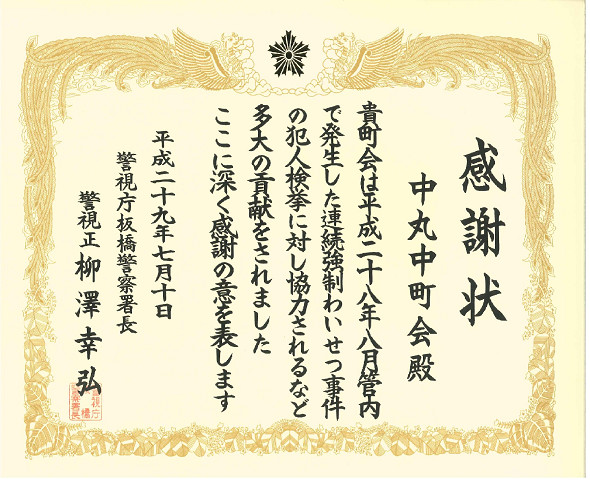 感謝状
中丸中町会殿
貴町会は平成二十八年八月管内
で発生した連続強制わいせつ事件
の犯人検挙に対し協力されるなど
多大の貢献をされました
ここに深く感謝の意を表します
平成二十九年七月十日
警視庁板橋警察署長
警視正 柳澤幸弘